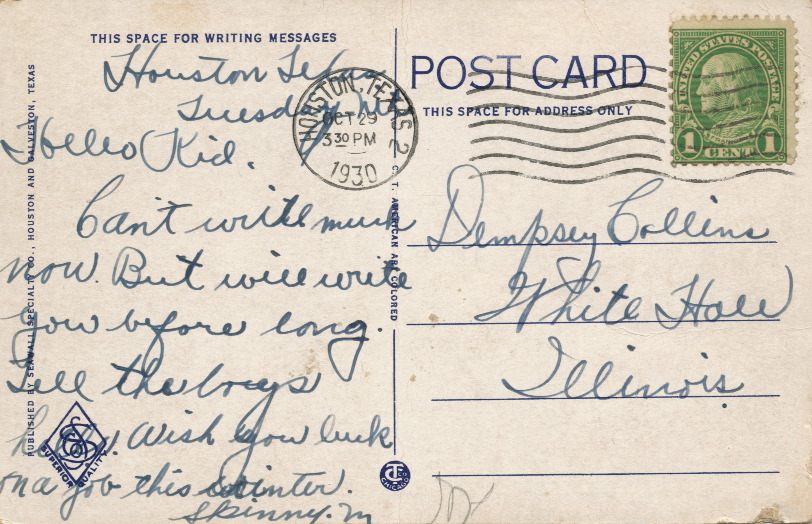 THIS SPACE FOR WRITING MESSAGES
Houston Texas
Tuesday
Hello Kid.
Can't write much
now. But will write
you before long.
Tell the boys
hello. Wish you luck
on a job this winter.
Skinny. M
PUBLISHED BY SEAWALL SPECIALTY CO., HOUSTON AND GALVESTON, TEXAS
SUPERIOR QUALITY
C. T. AMERICAN ART COLORED
HOUSTON, TEXAS 2
OCT 29
3 30 PM
1930
POST CARD
THIS SPACE FOR ADDRESS ONLY
UNITED STATES POSTAGE
1 CENT 1
Dempsey Collins
White Hall
Illinois
CHICAGO